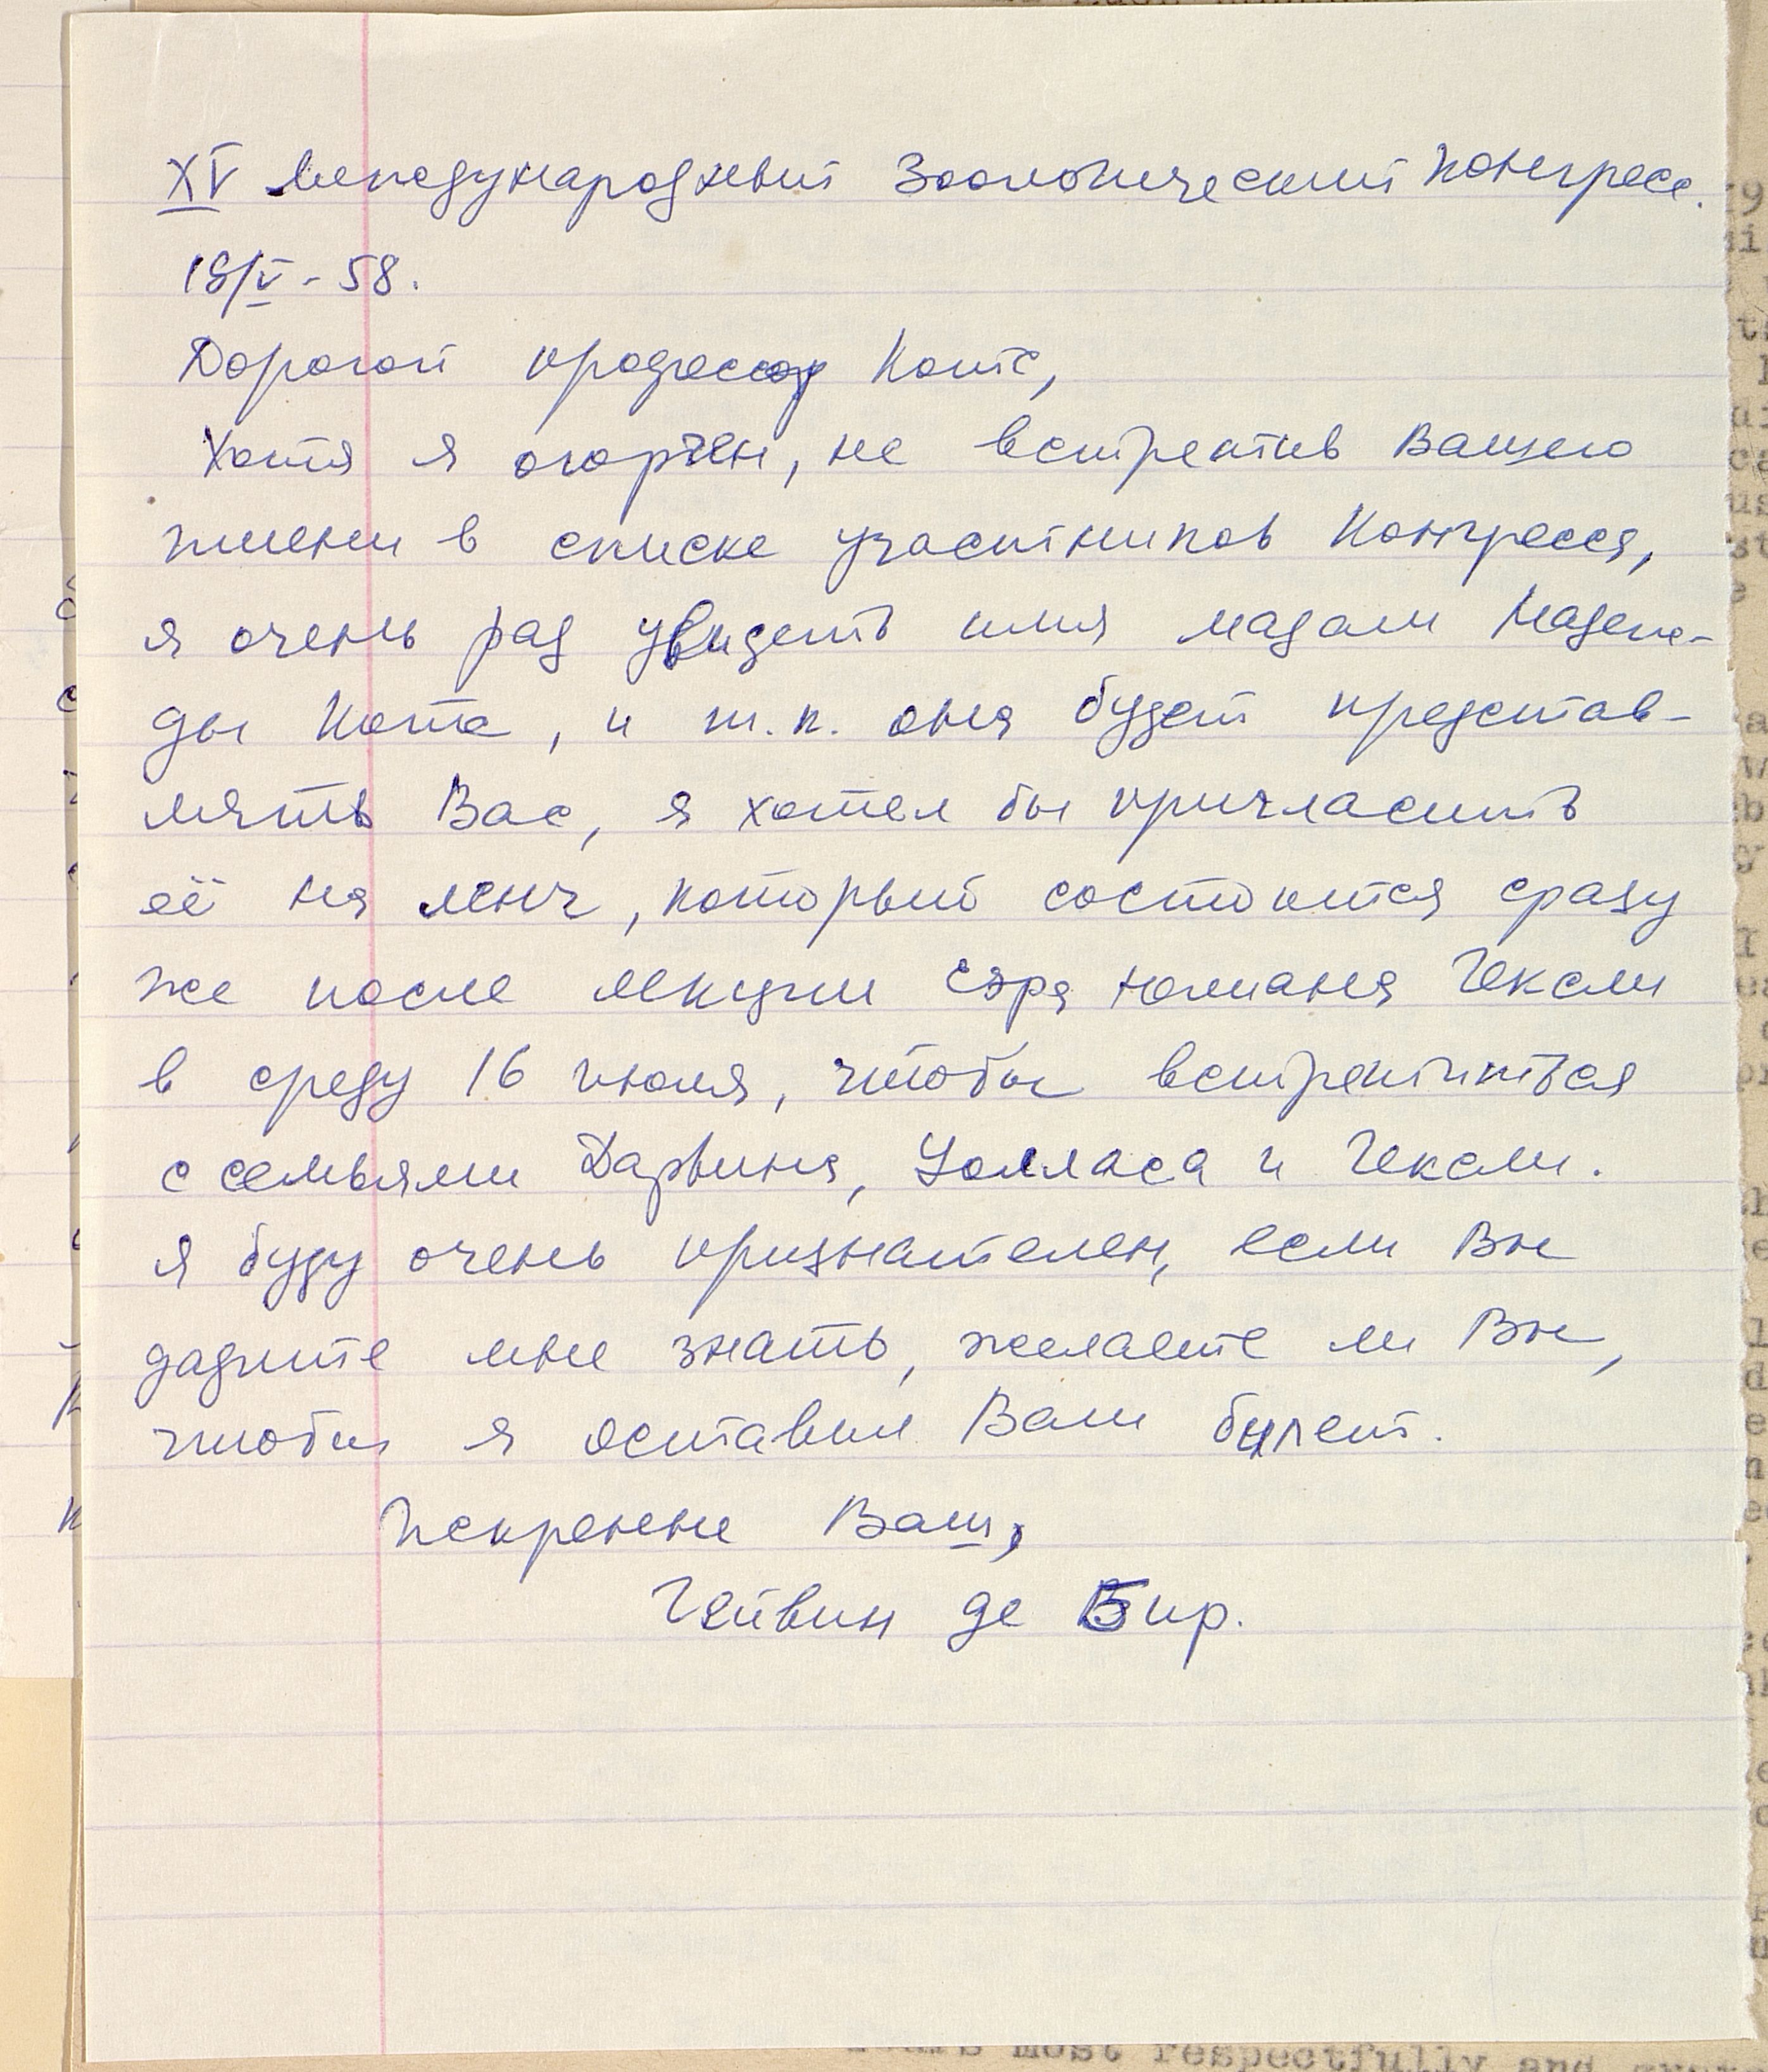 XV Международный Зоологический Конгресс.
18/V - 58.
Дорогой профессор Котс,
Хотя я огорчен, не встретив Вашего
имени в списке участников Конгресса,
я очень рад увидеть имя мадам Надеж-
ды Котс, и т.к. она будет представ-
лять Вас, я хотел бы пригласить
её на ленч, который состоится сразу
же после лекции Сэра Юлиана Гексли
в среду 16 июля, чтобы встретиться
с семьями Дарвина, Уолласа и Гексли.
Я буду очень признателен, если Вы
дадите мне знать, желаете ли Вы,
чтобы я оставил Вам билет.
Искренне Ваш,
Гейвин де Бир.
most respectfully and